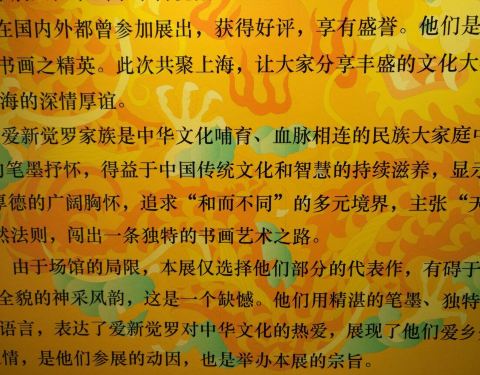 在国内外都曾参加展出，获得好评，享有盛誉。他们是
书画之精英。此次共聚上海，让大家分享丰盛的文化大
海的深情厚谊。
爱新觉罗家族是中华文化哺育、血脉相连的民族大家庭中
的笔墨抒怀，得益于中国传统文化和智慧的持续滋养，显示
厚德的广阔胸怀，追求“和而不同”的多元境界，主张“天
然法则，闯出一条独特的书画艺术之路。
由于场馆的局限，本展仅选择他们部分的代表作，有碍于
全貌的神采风韵，这是一个缺憾。他们用精湛的笔墨、独特
语言，表达了爱新觉罗对中华文化的热爱，展现了他们爱乡
情，是他们参展的动因，也是举办本展的宗旨。